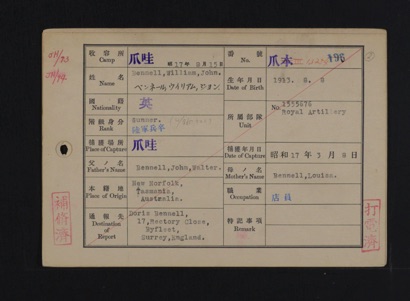 收容所
Camp
爪哇
昭17年8月15日
番號
No.
爪本
氏名
Name
Bennell, William, John.
生年月日
Date of Birth
1913. 8. 8
國籍
Nationality
英
所屬部隊
Unit
No.
Royal Artillery
階級身分
Rank
Gunner.
陸軍兵卒
捕獲場所
Place of Capture
爪哇
捕獲年月日
Date of Capture
昭和17年3月8日
父ノ名
Father's Name
Bennell, John, Walter.
母ノ名
Mother's Name
Bennell, Louisa.
本籍地
Place of Origin
New Norfolk,
Tasmania,
Australia.
職業
Occupation
店員
通報先
Destination of Report
Doris Bennell,
17, Rectory Close,
Byfleet,
Surrey, England.
特記事項
Remarks
補修濟
打電濟